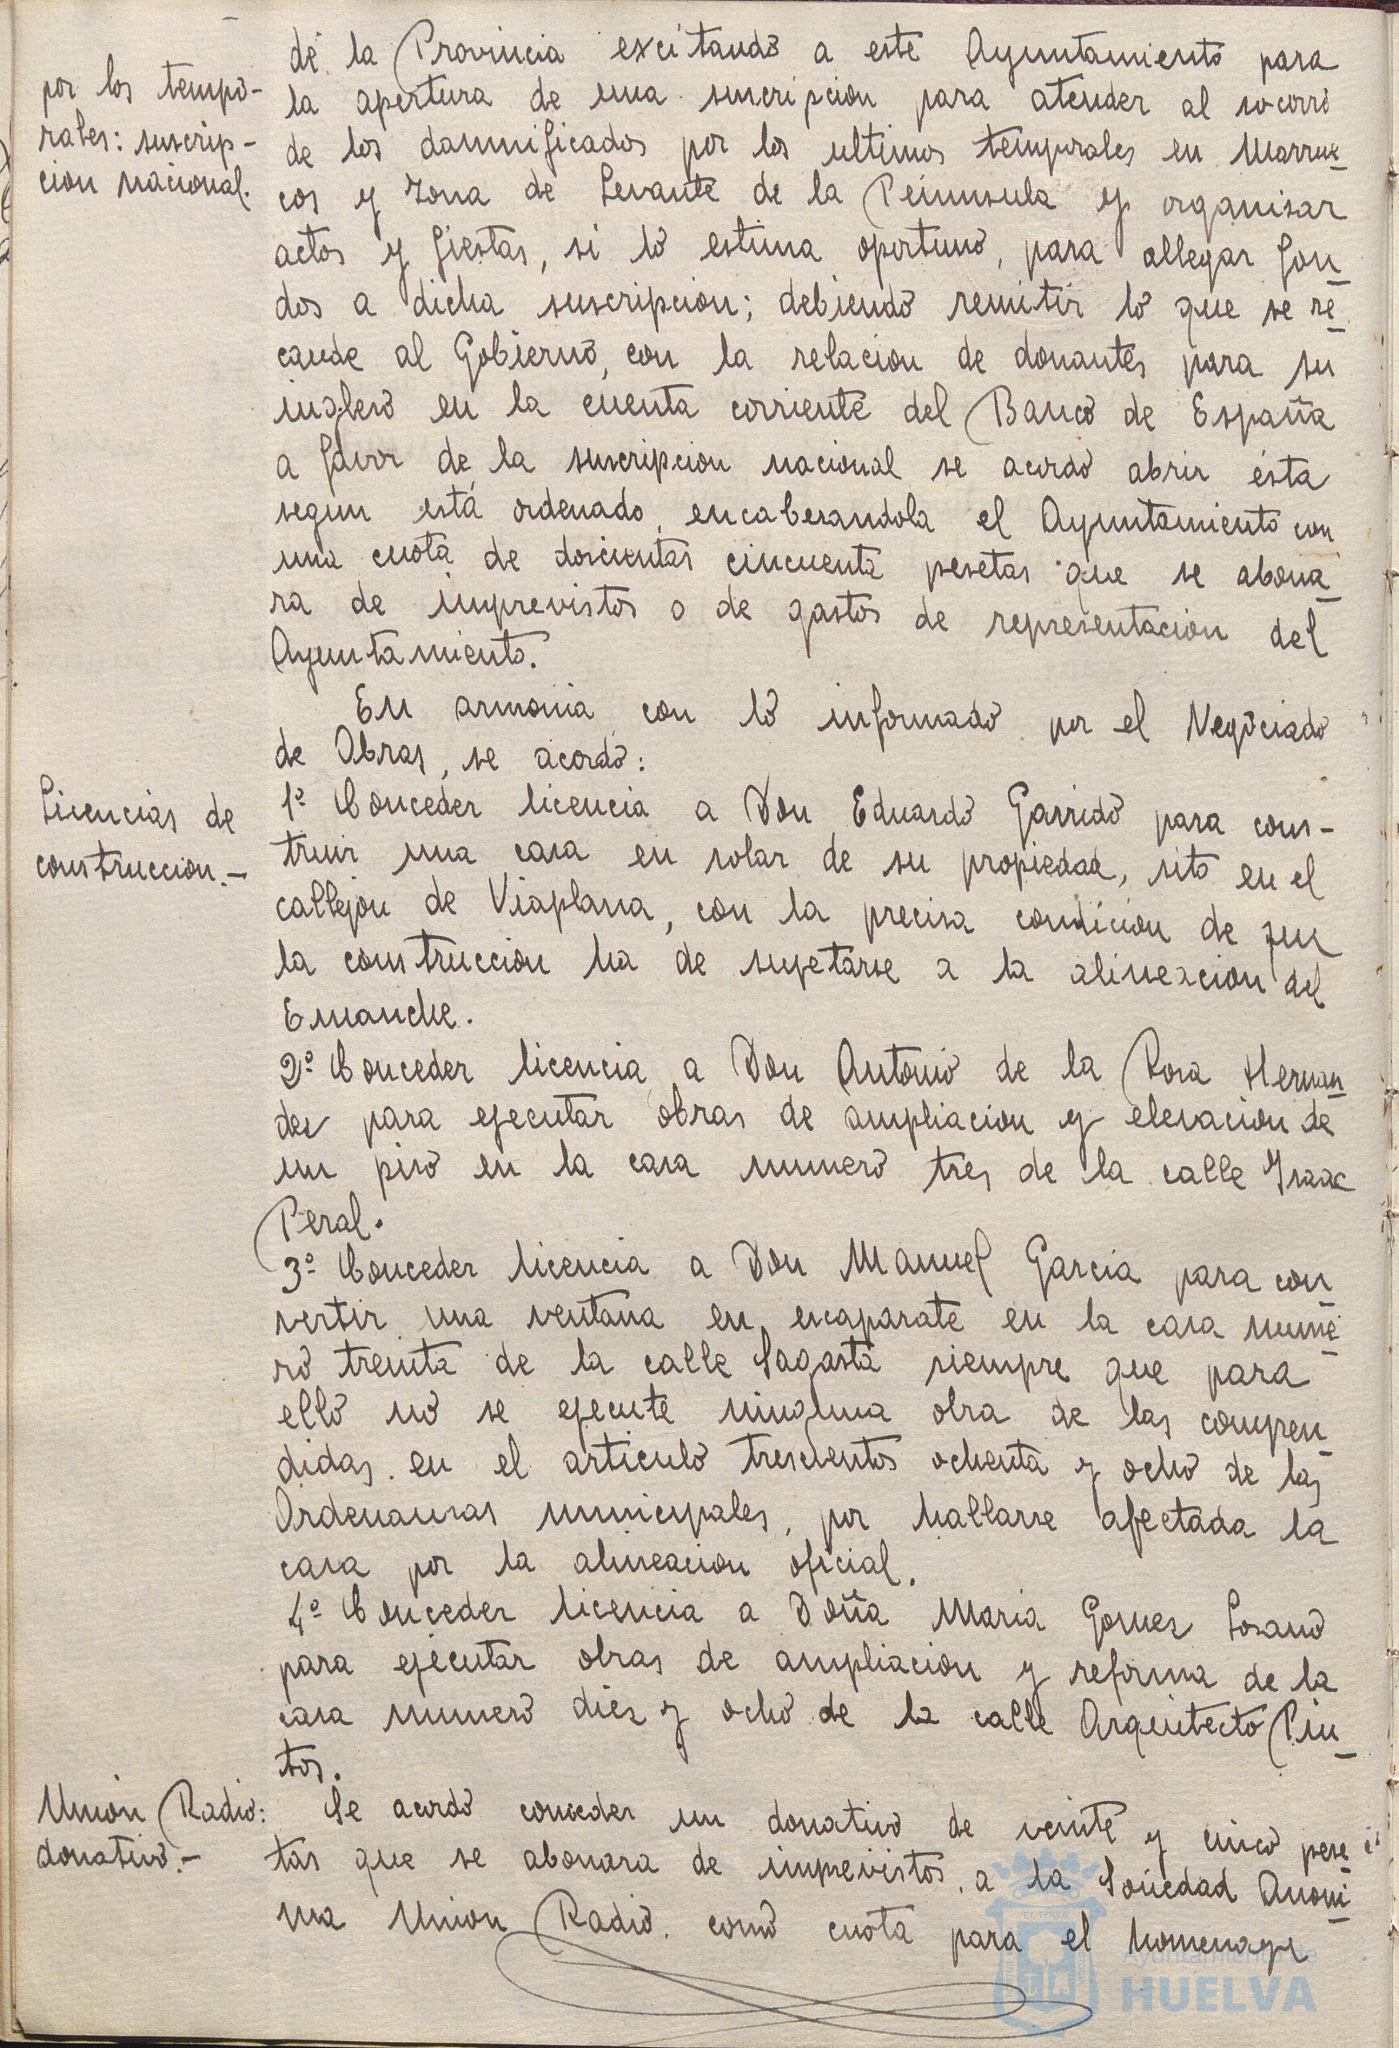 por los tempo-
rales: suscrip-
cion nacional.
de la Provincia excitando a este Ayuntamiento para
la apertura de una suscripcion para atender al socorro
de los damnificados por los ultimos temporales en Marrue-
cos y zona de Levante de la Peninsula y organisar
actos y fiestas, si lo estima oportuno, para allegar fon-
dos a dicha suscripcion; debiendo remitir lo que se re-
caude al Gobierno, con la relacion de donantes para su
ingreso en la cuenta corriente del Banco de España
a favor de la suscripcion nacional se acordó abrir ésta
segun está ordenado, encabesandola el Ayuntamiento con
una cuota de doscientas cincuenta pesetas que se abona-
ra de imprevistos o de gastos de representacion del
Ayuntamiento.
En armonia con lo informado por el Negociado
de Obras, se acordó:
Licencias de
construccion.-
1º Conceder licencia a Don Eduardo Garrido para cons-
truir una casa en solar de su propiedad, sito en el
callejon de Viaplana, con la precisa condicion de que
la construccion ha de sugetarse a la alineacion del
Ensanche.
2º Conceder licencia a Don Antonio de la Rosa Hernan-
dez para ejecutar obras de ampliacion y elevacion de
un piso en la casa numero tres de la calle Isaac
Peral.
3º Conceder licencia a Don Manuel Garcia para con-
vertir una ventana en escaparate en la casa nume-
ro treinta de la calle Sagasta siempre que para
ello no se ejecute ninguna obra de las compren-
didas en el articulo trescientos ochenta y ocho de las
Ordenansas municipales, por hallarse afectada la
casa por la alineacion oficial.
4º Conceder licencia a Doña Maria Gomez Losano
para ejecutar obras de ampliacion y reforma de la
casa numero diez y ocho de la calle Arquitecto Pin-
tos.
Union Radio:
donativo.-
Se acordó conceder un donativo de veinte y cinco pese-
tas que se abonara de imprevistos, a la Sociedad Anoni-
ma Union Radio, como cuota para el homenage
Ayuntamiento de
HUELVA